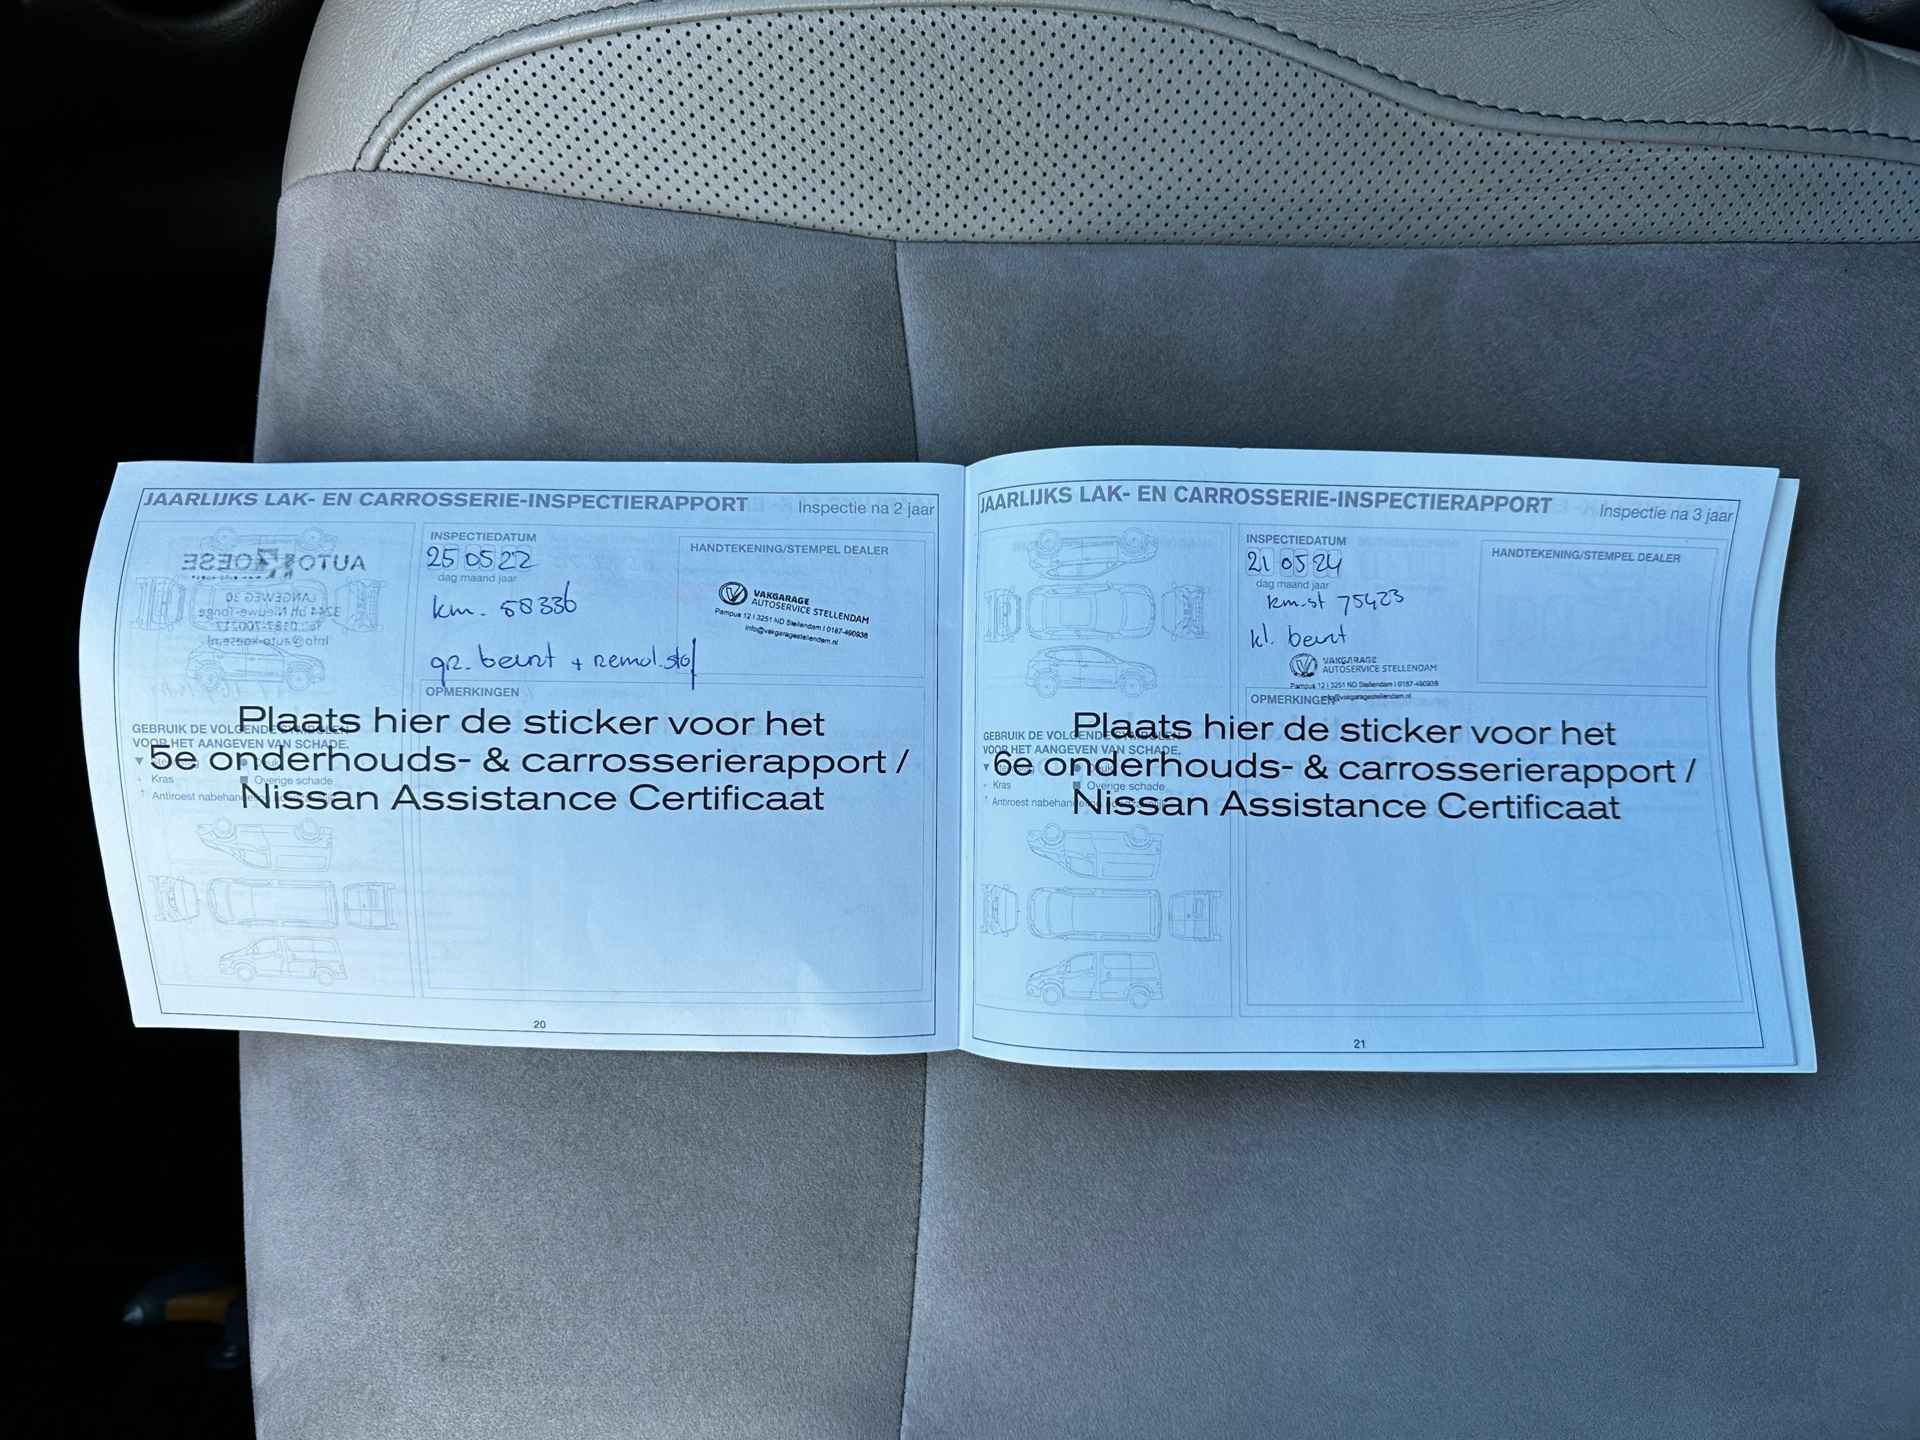 JAARLIJKS LAK- EN CARROSSERIE-INSPECTIERAPPORT
Inspectie na 2 jaar
INSPECTIEDATUM
25 05 22
dag maand jaar
km. 58336
gr. beurt + remol.stof
HANDTEKENING/STEMPEL DEALER
VAKGARAGE
AUTOSERVICE STELLENDAM
Pampus 12 I 3251 ND Stellendam I 0187-490936
info@vakgaragestellendam.nl
AUTO KOESE
LANGEWEG 30
info@auto-koese.nl
OPMERKINGEN
GEBRUIK DE VOLGENDE SYMBOLEN
VOOR HET AANGEVEN VAN SCHADE.
Kras
Overige schade
Antiroest
Plaats hier de sticker voor het
5e onderhouds- & carrosserierapport /
Nissan Assistance Certificaat
20
JAARLIJKS LAK- EN CARROSSERIE-INSPECTIERAPPORT
Inspectie na 3 jaar
INSPECTIEDATUM
21 05 24
dag maand jaar
km.st 75423
kl. beurt
VAKGARAGE
AUTOSERVICE STELLENDAM
Pampus 12 I 3251 ND Stellendam I 0187-490936
info@vakgaragestellendam.nl
HANDTEKENING/STEMPEL DEALER
OPMERKINGEN
GEBRUIK DE VOLGENDE SYMBOLEN
VOOR HET AANGEVEN VAN SCHADE.
Kras
Overige schade
Antiroest
Plaats hier de sticker voor het
6e onderhouds- & carrosserierapport /
Nissan Assistance Certificaat
21